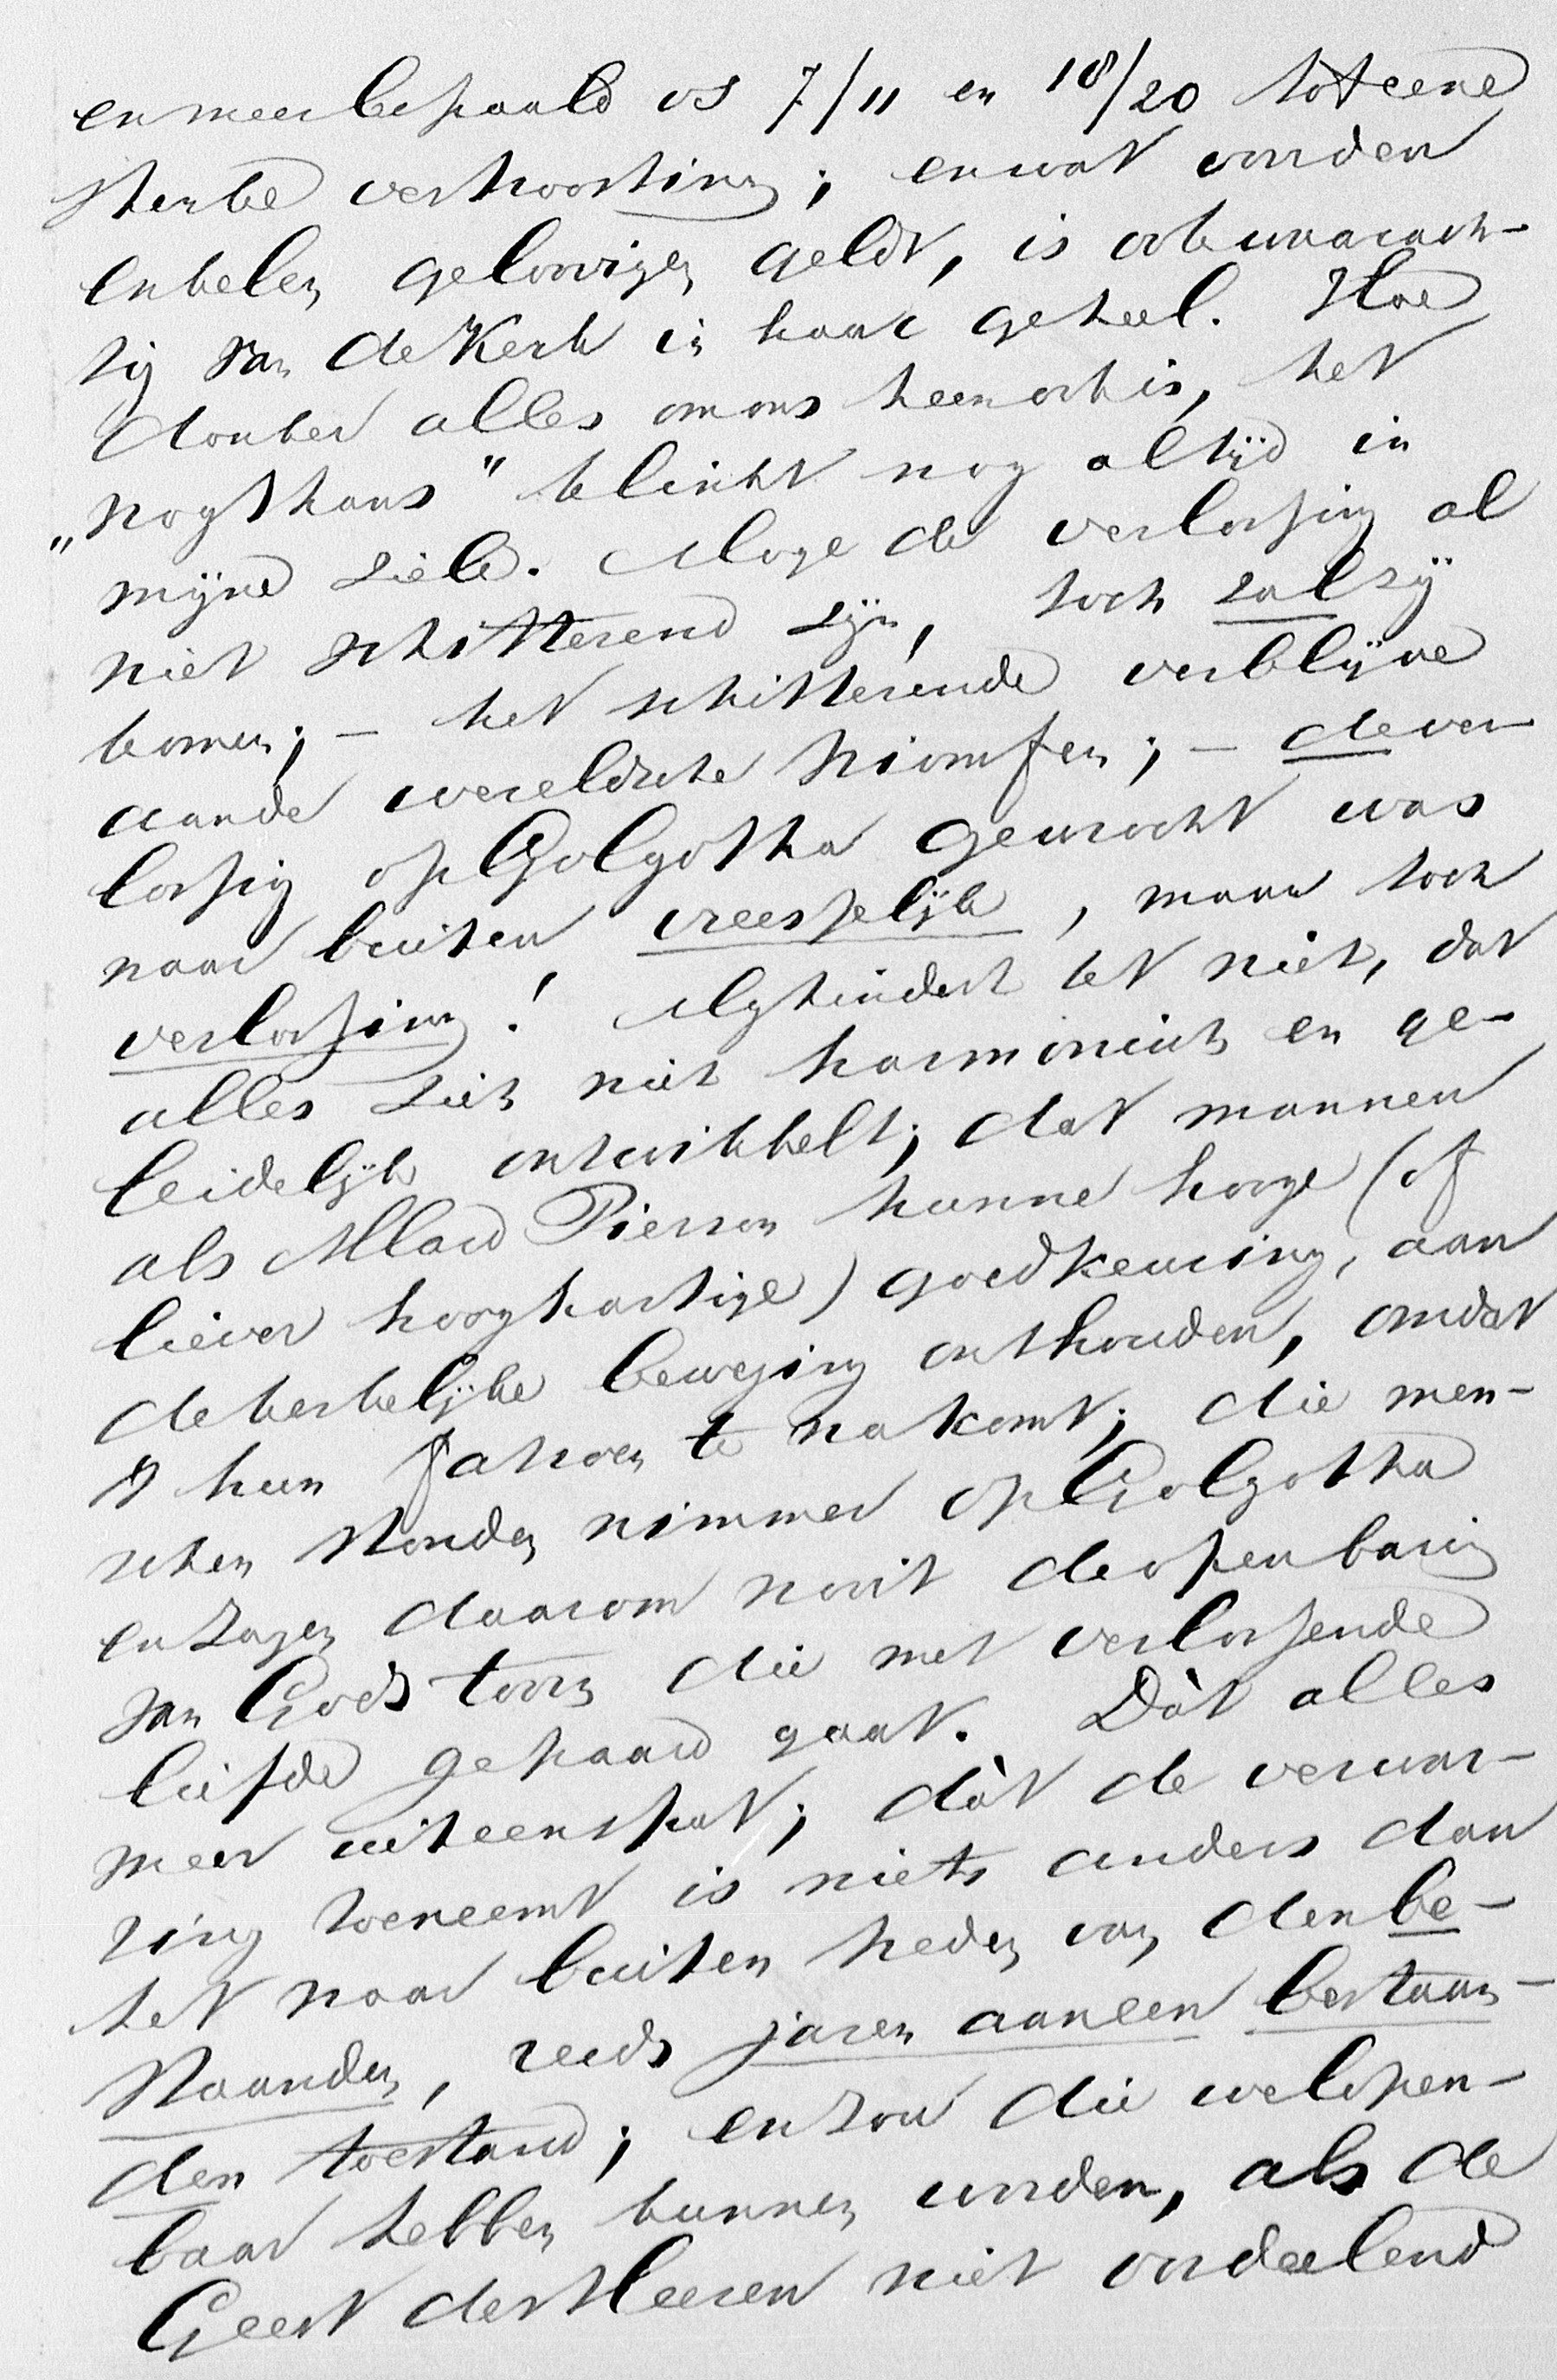 en meer bepaald vs 7/11 en 18/20 tot eene
sterke vertroosting; en wat van den
enkelen geloovigen geldt, is ook waarach-
tig van de Kerk in haar geheel. Hoe
donker alles om ons heen ook is, het
„nogthans" klinkt nog altijd in
mijne ziele. Moge de verlossing al
niet schitterend zijn, toch zal zij
komen; – het schitterende verblijve
aan de wereldsche triomfen; – de ver-
lossing op Golgotha gewrocht was
naar buiten vreesselijk, maar toch
verlossing! Mij hindert het niet, dat
alles zich niet harmonisch en ge-
leidelijk ontwikkelt; dat mannen
als Allard Pierson hunne hooge (of
liever hooghartige) goedkeuring, aan
de kerkelijke beweging onthouden, omdat
't hun fatsoen te na komt; die men-
schen stonden nimmer op Golgotha
en zagen daarom nooit de openbaring
van Gods toorn die met verlossende
liefde gepaard gaat. Dàt alles
meer uiteenspat; dàt de verwar-
ring toeneemt is niets anders dan
het naar buiten treden van den be-
staanden, reeds jaren aaneen bestaan-
den toestand; en zou die wel open-
baar hebben kunnen worden, als de
Geest des Heeren niet oordeelend